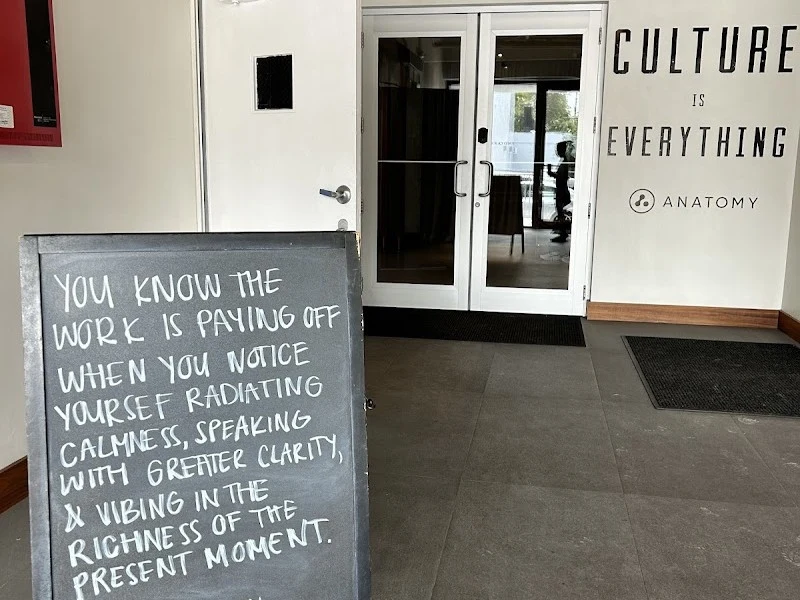 YOU KNOW THE
WORK IS PAYING OFF
WHEN YOU NOTICE
YOURSEF RADIATING
CALMNESS, SPEAKING
WITH GREATER CLARITY,
& VIBING IN THE
RICHNESS OF THE
PRESENT MOMENT.
CULTURE
IS
EVERYTHING
ANATOMY